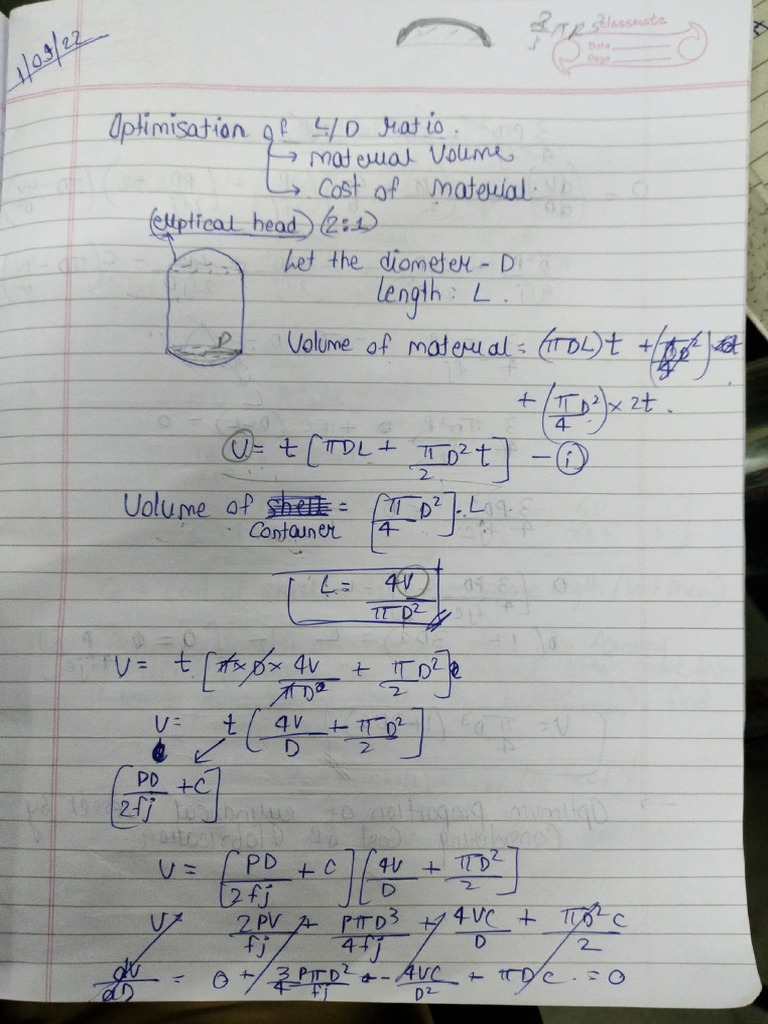 1/09/22
3/3 πR³ classmate
Date
Page
Optimisation of L/D ratio.
→ material Volume
→ Cost of material.
(elliptical head) (2:1)
Let the diameter - D
length: L.
D
Volume of material = (πDL)t +
+ (π/4 D²) × 2t.
V = t [πDL + π/2 D² t] - (i)
Volume of shell = [π/4 D²] . L.
Container
L = 4V/πD²
V = t [π × D × 4V/πD² + π/2 D²]
V = t [4V/D + πD²/2]
[PD/2fj + C]
V = [PD/2fj + C] [4V/D + πD²/2]
V = 2PV/fj + PπD³/4fj + 4VC/D + πD²C/2
dV/dD = 0 + 3/4 PπD²/fj - 4VC/D² + πDC = 0